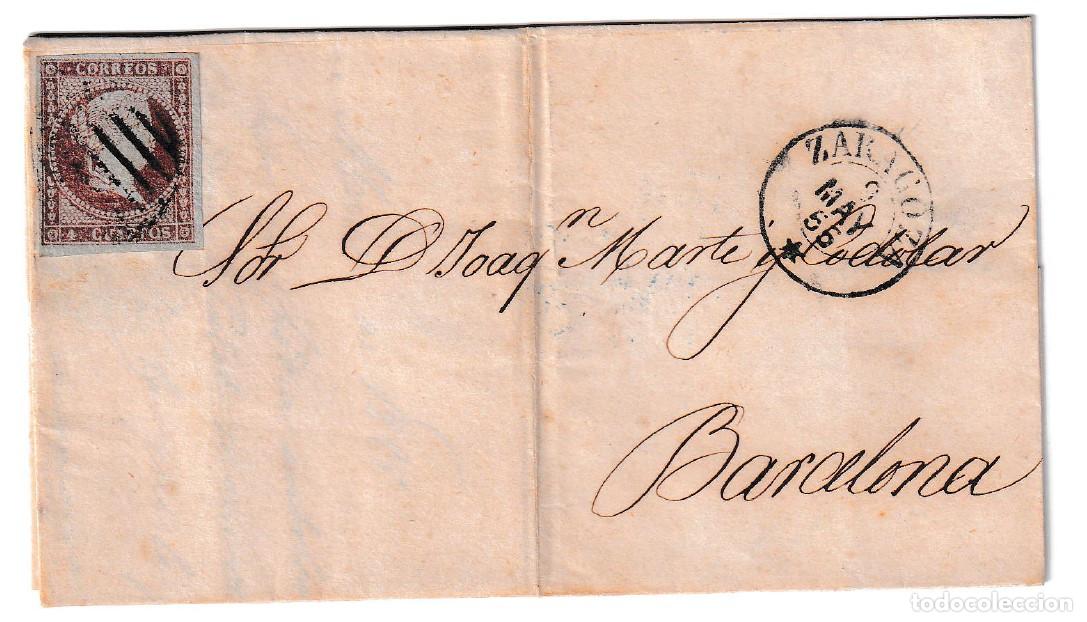 CORREOS
4 CUARTOS
ZARAGOZA
MAY
56
Sor Dn Joaqn Marte y Codolar
Barcelona
todocoleccion